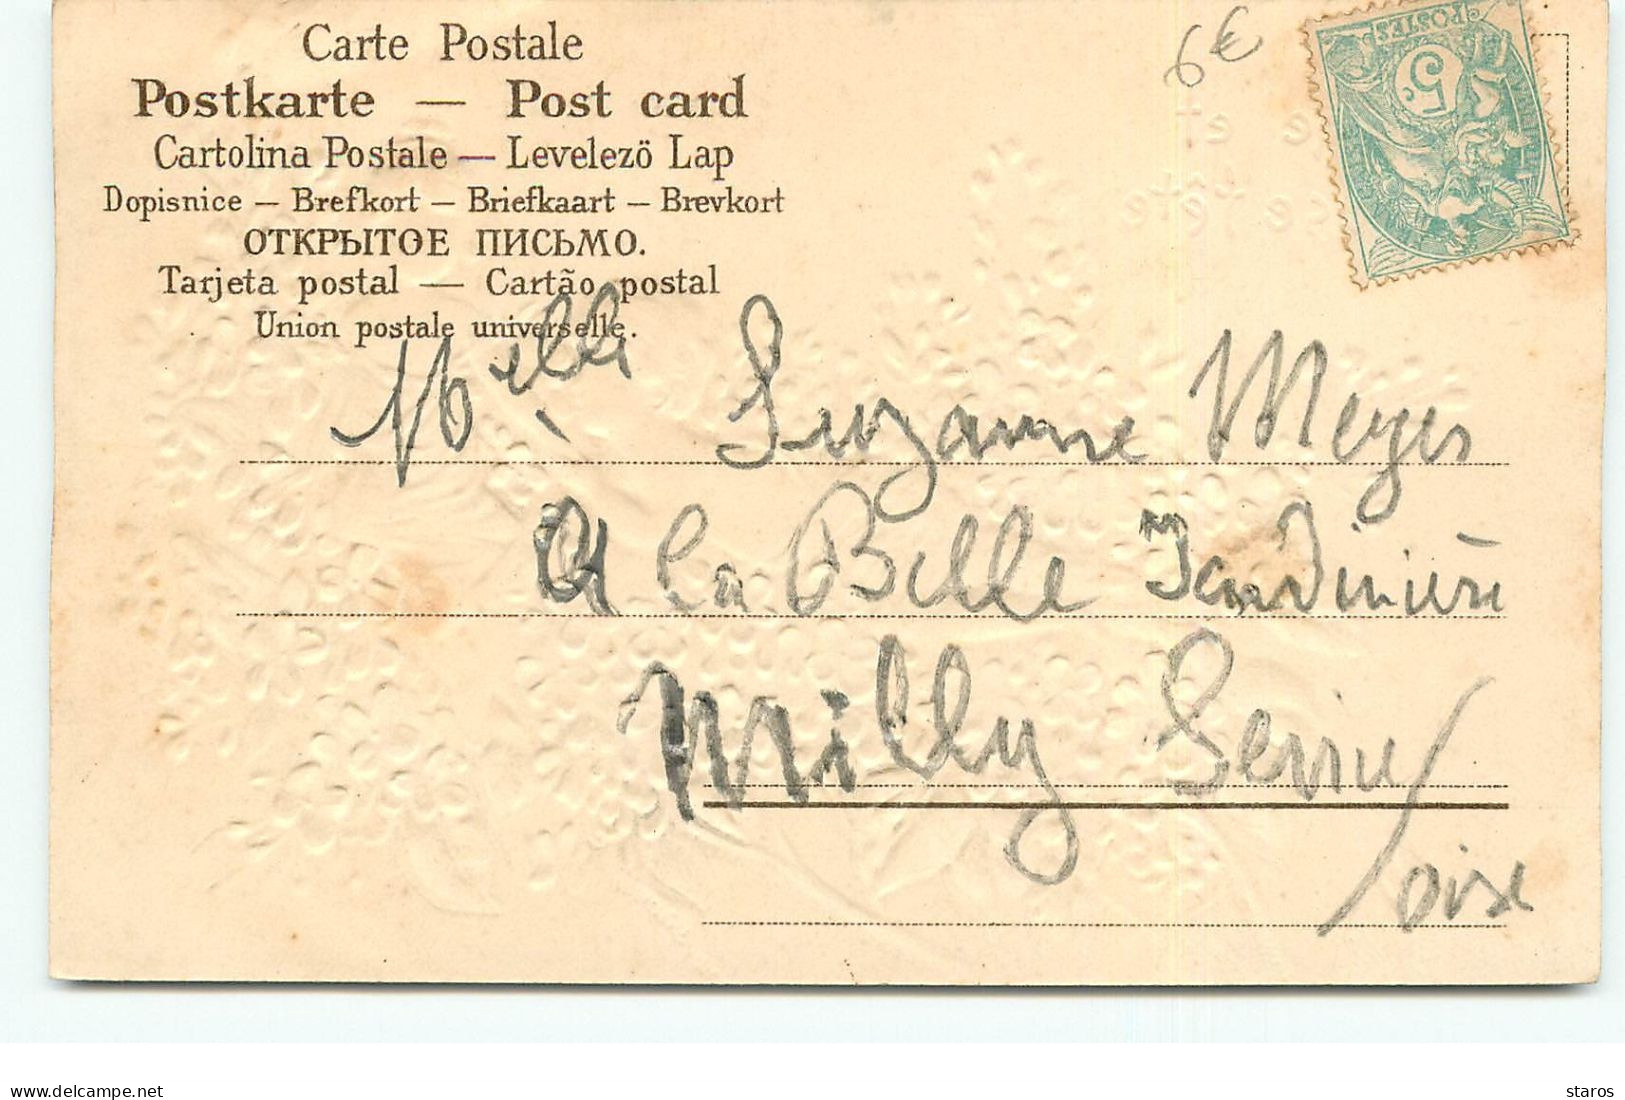 Carte Postale
Postkarte — Post card
Cartolina Postale — Levelezö Lap
Dopisnice — Brefkort — Briefkaart — Brevkort
ОТКРЫТОЕ ПИСЬМО.
Tarjeta postal — Cartão postal
Union postale universelle.
6€
POSTES
5c
Melle Suzanne Meyer
A la Belle Jardinière
Milly
oise
delcampe.net
staros